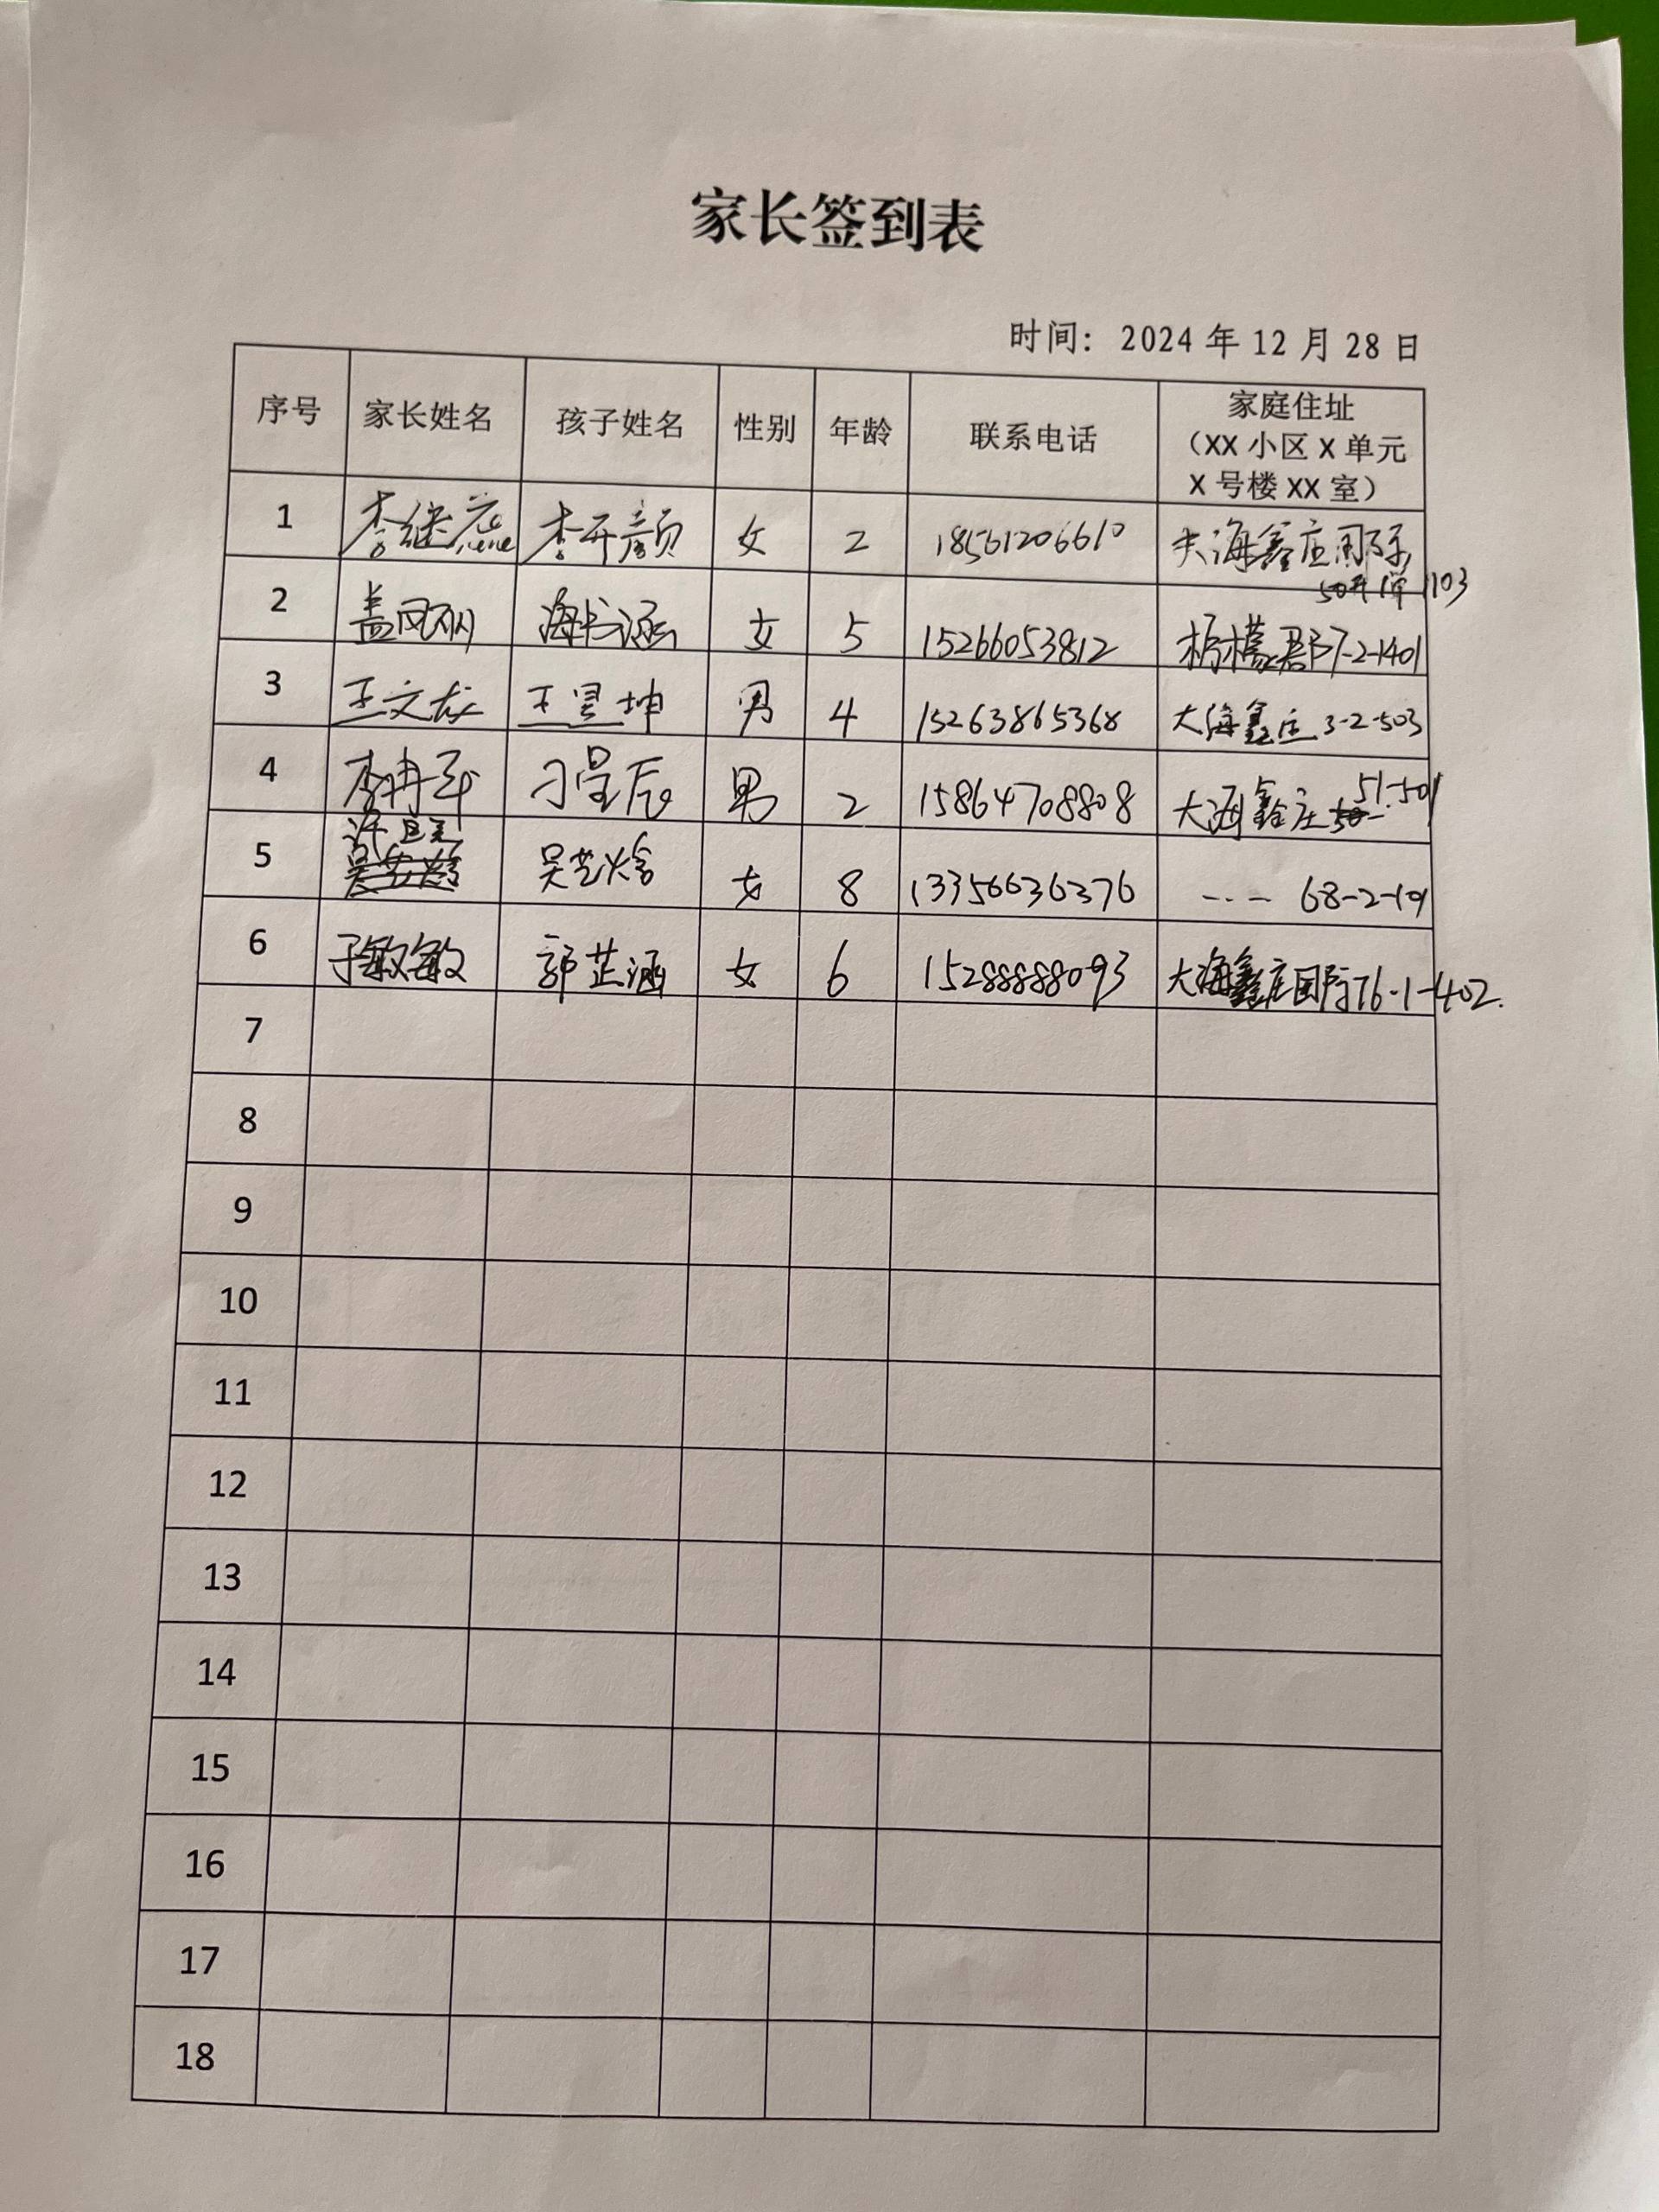 家长签到表
时间：2024 年 12 月 28 日
序号 家长姓名 孩子姓名 性别 年龄 联系电话 家庭住址
（XX 小区 X 单元
X 号楼 XX 室）
1 李继 李开颜 女 2 18561206610 大海鑫庄国际
1103
2 盖凤 海书涵 女 5 15266053812 柠檬郡7-2-1401
3 王文龙 王昱坤 男 4 15263865368 大海鑫庄 3-2-503
4 李冉 刁呈辰 男 2 15864708808 大海鑫庄 51-501
5 许 吴艺焓 女 8 13356636376 ---- 68-2-101
6 于敏敏 郭芷涵 女 6 15288888093 大海鑫庄国际76-1-402.
7
8
9
10
11
12
13
14
15
16
17
18